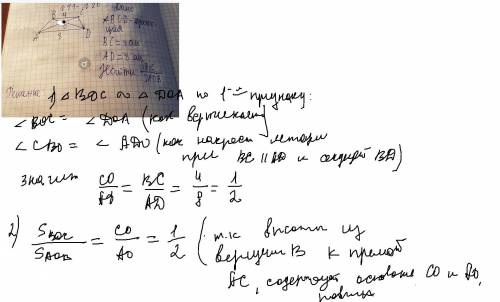 B 4 C
A 8 D
Дано:
ABCD - трапе-
ция
BC = 4 см
AD = 8 см
Найти:
Решение 1) △ BOC ∾ △ DOA по 1-му признаку:
∠ BOC = ∠ DOA (как вертикальн)
∠ CBO = ∠ ADO (как накрест лежащи
при BC ∥ AD и секущей BD)
значит CO/AO = BC/AD = 4/8 = 1/2
2) S BOC / S AOB = CO/AO = 1/2 (т.к высоты из
вершин B к прямой
AC, содержащ основан CO и AO,
равны